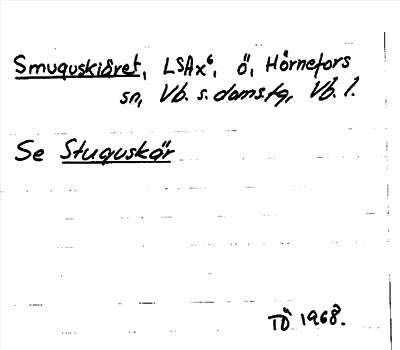 Smuguskiäret, LSAx⁶, ö, Hörnefors
sn, Vb. s. doms.fg, Vb. l.
Se Stuguskär
TÖ 1968.